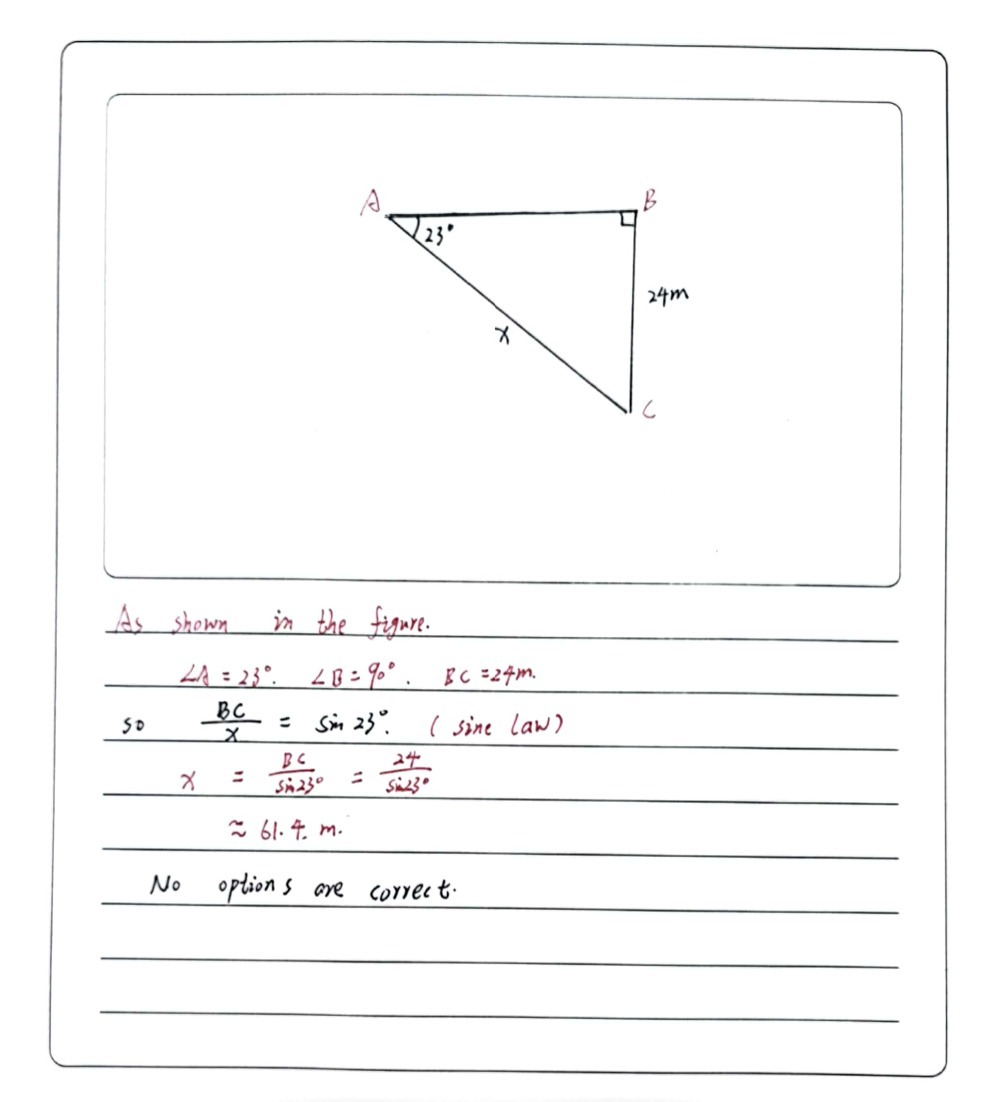 A
B
23°
24m
x
C
As shown in the figure.
∠A = 23°. ∠B = 90°. BC = 24m.
so BC/x = sin 23°. ( sine law)
x = BC/sin23° = 24/sin23°
≈ 61.4. m.
No options are correct.